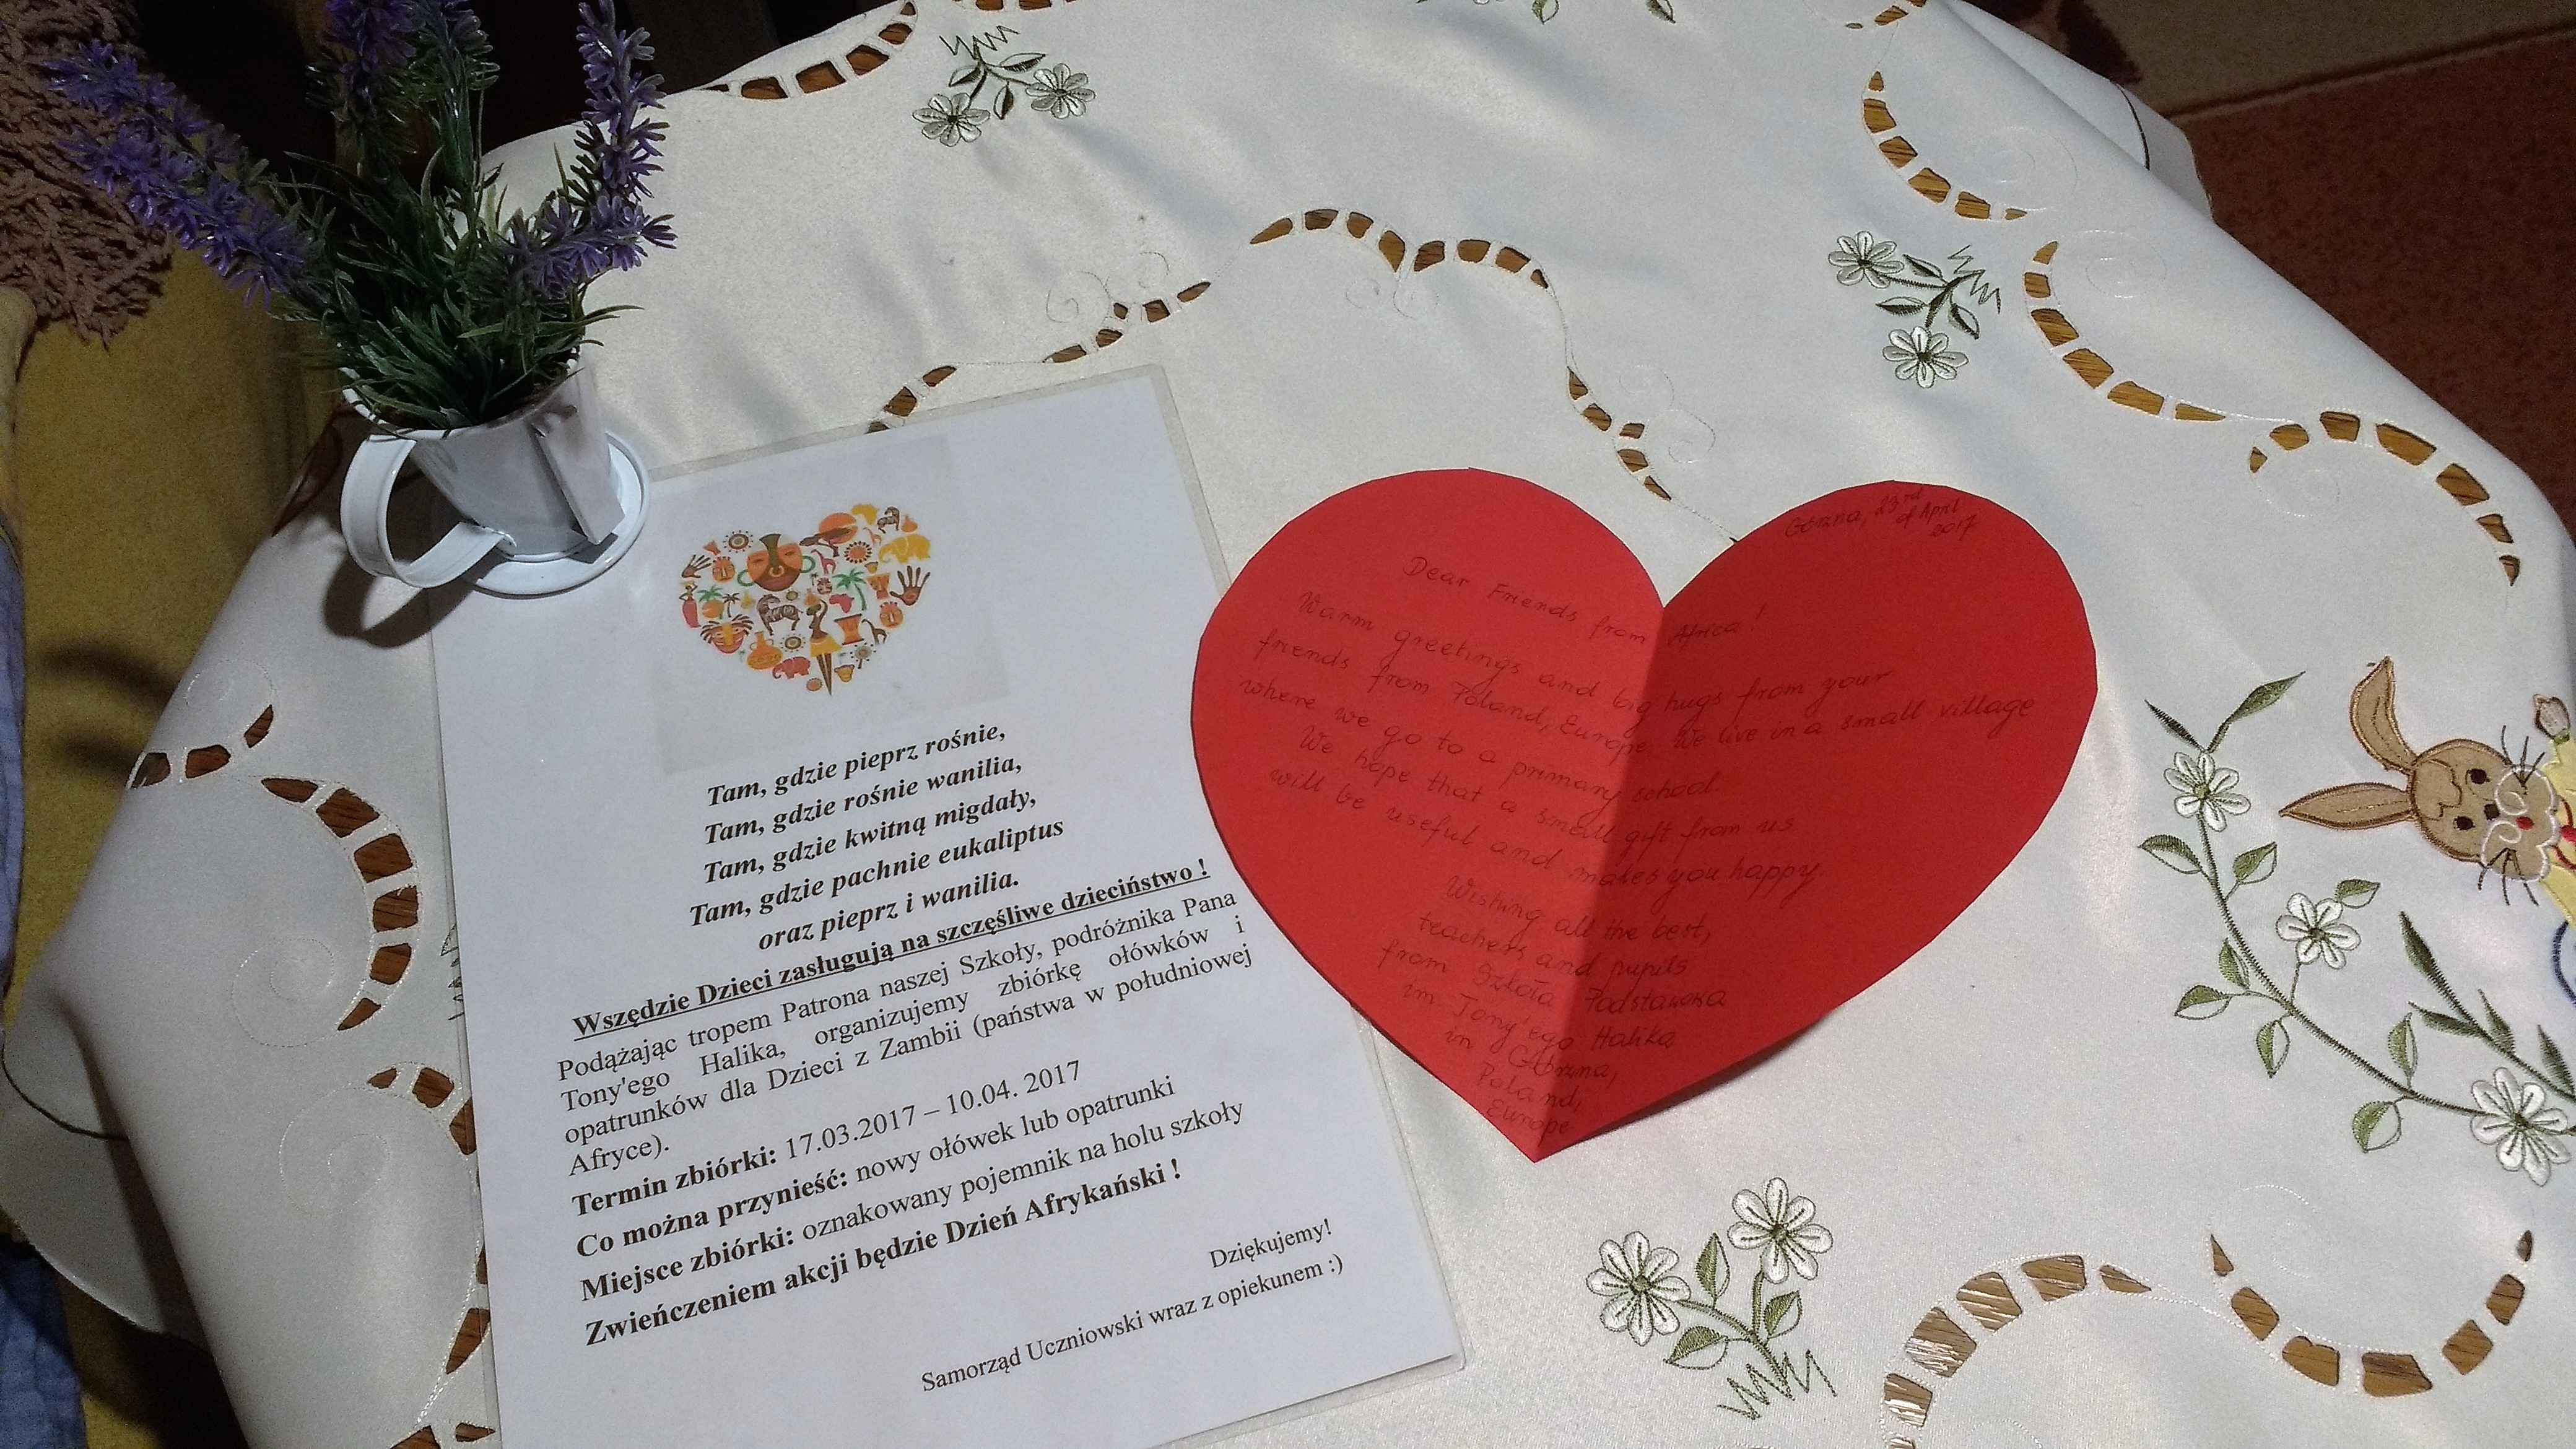 Tam, gdzie pieprz rośnie,
Tam, gdzie rośnie wanilia,
Tam, gdzie kwitną migdały,
Tam, gdzie pachnie eukaliptus
oraz pieprz i wanilia.
Wszędzie Dzieci zasługują na szczęśliwe dzieciństwo !
Podążając tropem Patrona naszej Szkoły, podróżnika Pana
Tony'ego Halika, organizujemy zbiórkę ołówków i
opatrunków dla Dzieci z Zambii (państwa w południowej
Afryce).
Termin zbiórki: 17.03.2017 – 10.04. 2017
Co można przynieść: nowy ołówek lub opatrunki
Miejsce zbiórki: oznakowany pojemnik na holu szkoły
Zwieńczeniem akcji będzie Dzień Afrykański !
Dziękujemy!
Samorząd Uczniowski wraz z opiekunem :)
Górzna, 23rd
of April
2017
Dear Friends from Africa !
Warm greetings and big hugs from your
friends from Poland, Europe. We live in a small village
where we go to a primary school.
We hope that a small gift from us
will be useful and makes you happy.
Wishing all the best,
teachers and pupils
from Szkoła Podstawowa
im Tony'ego Halika
in Górzna,
Poland,
Europe